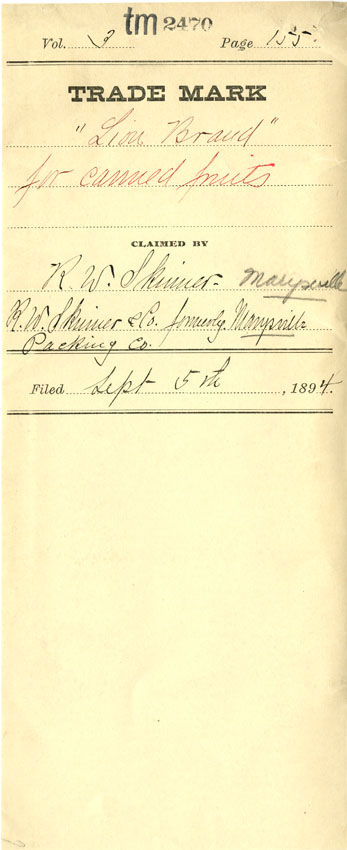 tm 2470
Vol. 3 Page 155.
TRADE MARK
"Lion Brand"
for canned fruits
CLAIMED BY
R. W. Skinner - Marysville
R. W. Skinner & Co. formerly Marysville
Packing Co.
Filed Sept 5th, 1894.